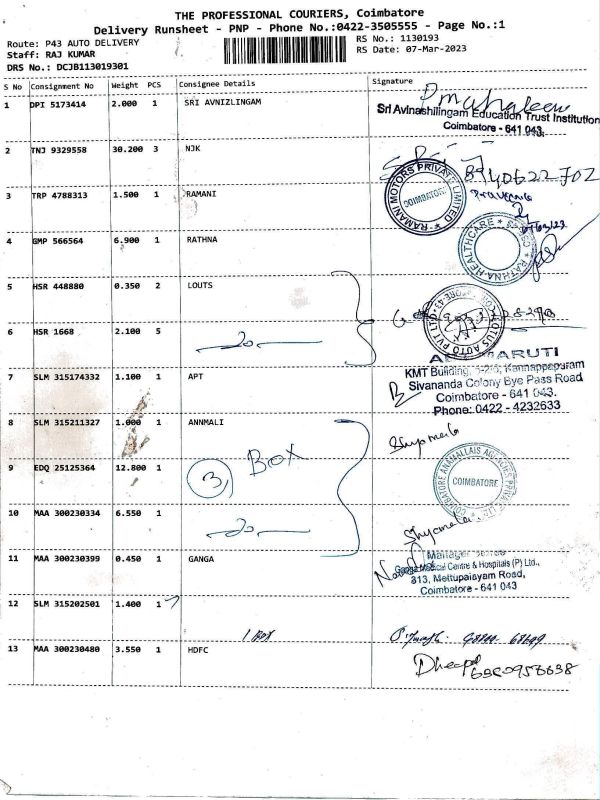 THE PROFESSIONAL COURIERS, Coimbatore
Delivery Runsheet - PNP - Phone No.:0422-3505555 - Page No.:1
Route: P43 AUTO DELIVERY
RS No.: 1130193
Staff: RAJ KUMAR
RS Date: 07-Mar-2023
DRS No.: DCJB113019301
S No Consignment No Weight PCS Consignee Details Signature
1 DPI 5173414 2.000 1 SRI AVNIZLINGAM
Sri Avinashilingam Education Trust Institution
Coimbatore - 641 043.
2 TNJ 9329558 30.200 3 NJK
3 TRP 4788313 1.500 1 RAMANI
RAMANI MOTORS PRIVATE LIMITED
COIMBATORE
4 GMP 566564 6.900 1 RATHNA
RATHNA HEALTHCARE
5 HSR 448880 0.350 2 LOUTS
LOTUS AUTO PVT LTD
6 HSR 1668 2.100 5
MARUTI
7 SLM 315174332 1.100 1 APT
KMT Building, Kannappapuram
Sivananda Colony Bye Pass Road
Coimbatore - 641 043.
Phone: 0422 - 4232633
8 SLM 315211327 1.000 1 ANNMALI
9 EDQ 25125364 12.800 1
3 Box
COIMBATORE ANAMALLAIS AGENCIES PRIVATE LIMITED
COIMBATORE
10 MAA 300230334 6.550 1
11 MAA 300230399 0.450 1 GANGA
Manager
Ganga Medical Centre & Hospitals (P) Ltd.,
313, Mettupalayam Road,
Coimbatore - 641 043
12 SLM 315202501 1.400 1
1 Box
13 MAA 300230480 3.550 1 HDFC